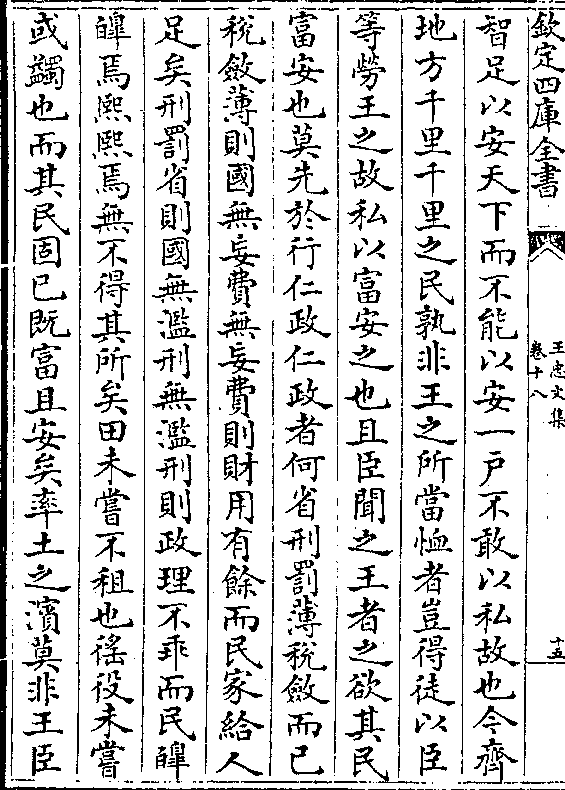 欽定四庫全書
王忠文集
卷十八
十五
智足以安天下而不能以安一户不敢以私故也今齊
地方千里千里之民孰非王之所當恤者豈得徒以臣
等勞王之故私以富安之也且臣聞之王者之欲其民
富安也莫先於行仁政仁政者何省刑罰薄稅斂而已
稅斂薄則國無妄費無妄費則財用有餘而民家給人
足矣刑罰省則國無濫刑無濫刑則政理不乖而民皥
皥焉熙熙焉無不得其所矣田未嘗不租也徭役未嘗
或蠲也而其民固已既富且安矣率土之濱莫非王臣